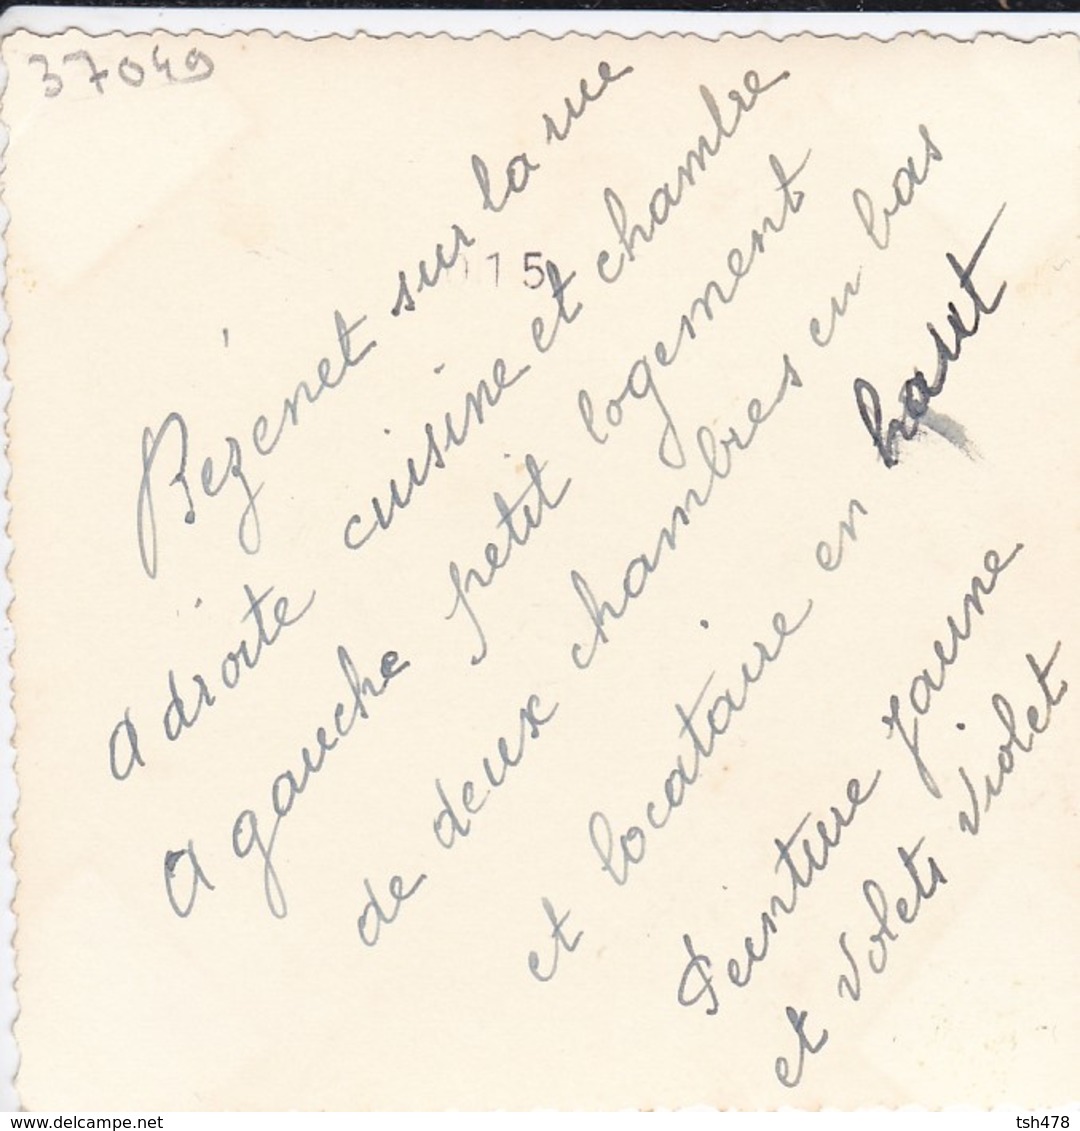 37049
Bézenet sur la rue
015
a droite cuisine et chambre
a gauche petit logement
de deux chambres en bas
et locataire en haut
Peinture jaune
et volets violet
tsh478